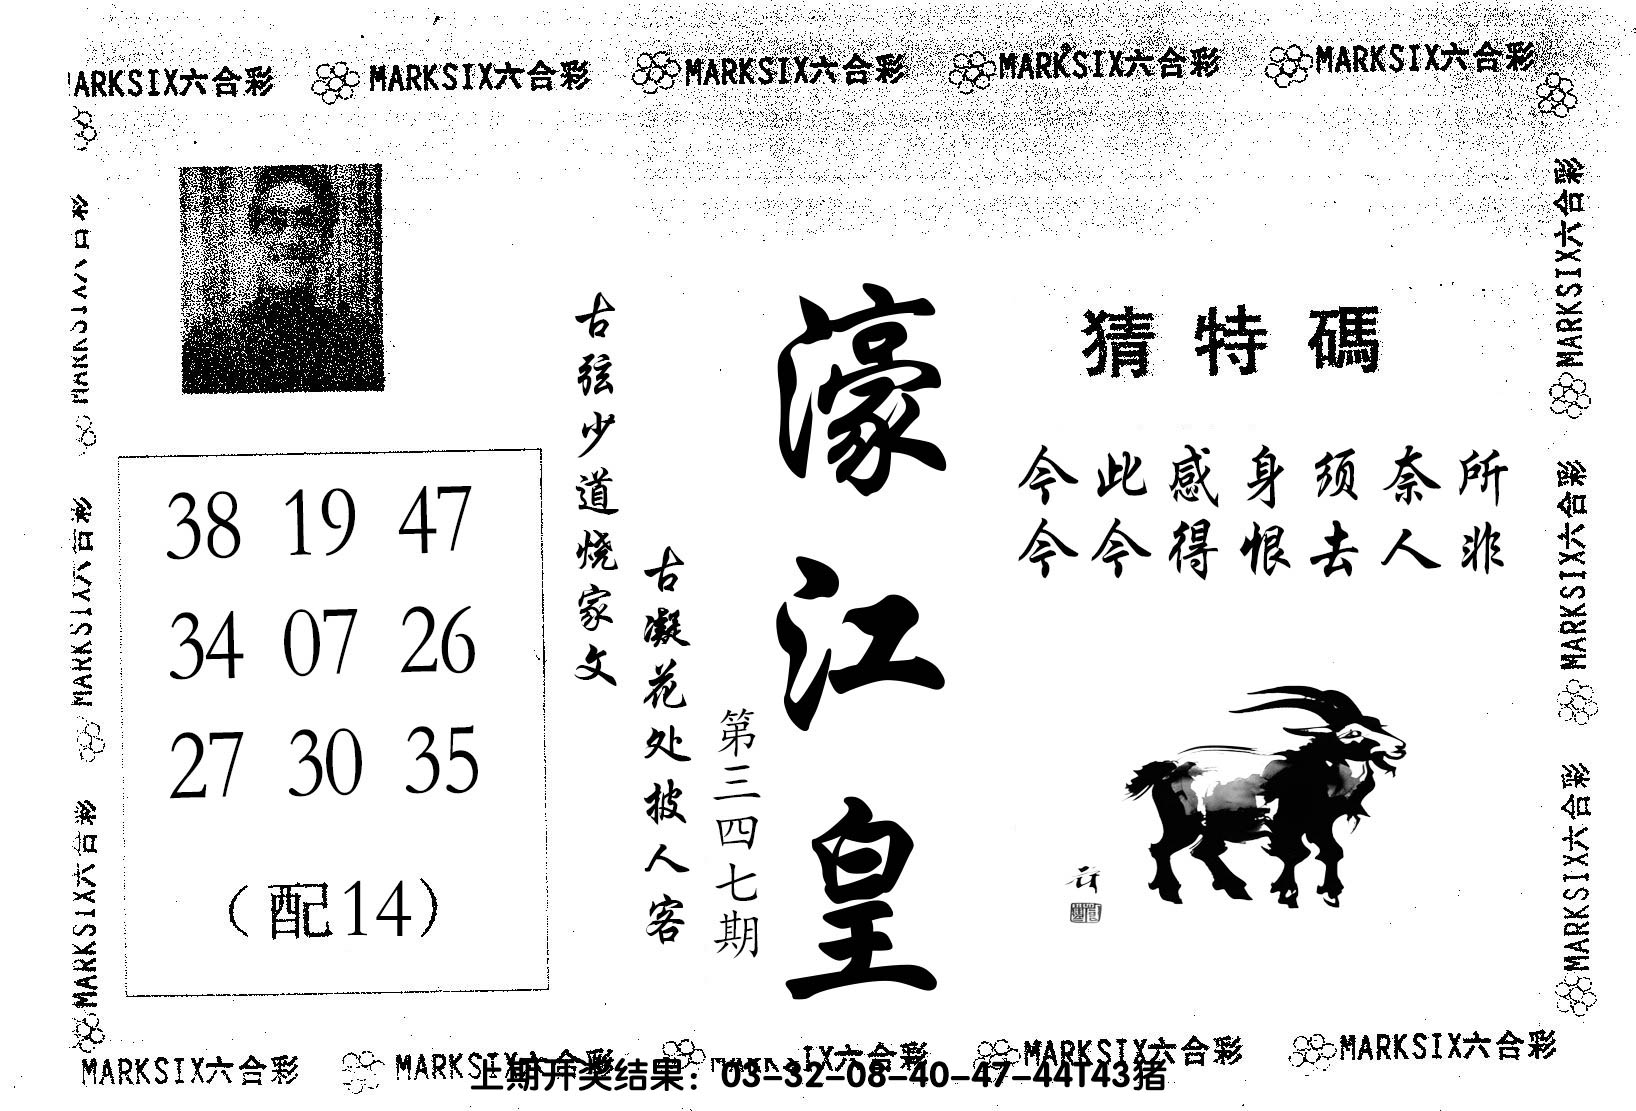 MARKSIX六合彩 MARKSIX六合彩 MARKSIX六合彩 MARKSIX六合彩 MARKSIX六合彩
MARKSIX六合彩
MARKSIX六合彩
MARKSIX六合彩
MARKSIX六合彩
MARKSIX六合彩
MARKSIX六合彩
猜特碼
今此感身须奈所
今今得恨去人非
濠江皇
第三四七期
古凝花处披人客
古弦少道烧家文
38 19 47
34 07 26
27 30 35
（配14）
MARKSIX六合彩 MARKSIX六合彩 MARKSIX六合彩 MARKSIX六合彩 MARKSIX六合彩
上期开奖结果：03-32-08-40-47-44T43猪